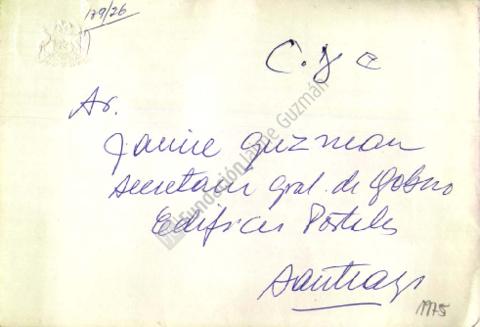 179/26
C. y C
Sr.
Jaime Guzman
Secretaria Gral. de Gobno
Edificio Portales
Santiago
1975
Fundación Jaime Guzmán